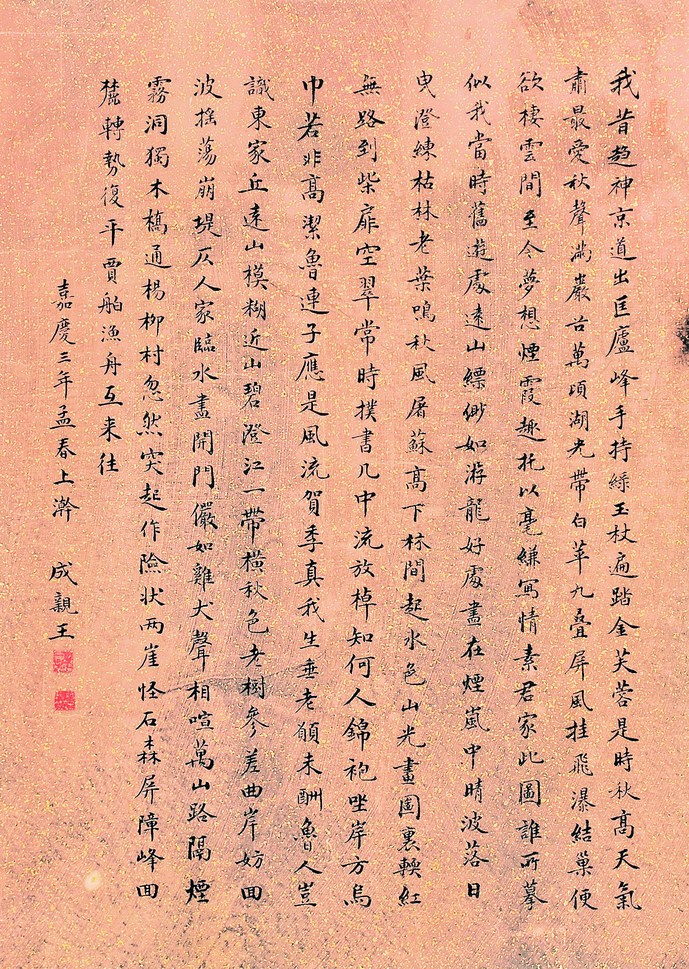 我昔趨神京道出匡廬峰手持綠玉杖遍踏金芙蓉是時秋高天氣
肅最愛秋聲滿巖谷萬頃湖光帶白蘋九疊屏風挂飛瀑結巢便
欲棲雲間至今夢想煙霞趣托以毫縑寫情素君家此圖誰所摹
似我當時舊遊處遠山縹緲如游龍好處盡在煙嵐中晴波落日
曳澄練枯林老葉鳴秋風屠蘇高下林間起水色山光畫圖裏輭紅
無路到柴扉空翠常時撲書几中流放棹知何人錦袍坐岸方烏
巾若非高潔魯連子應是風流賀季真我生垂老願未酬魯人豈
識東家丘遠山模糊近山碧澄江一帶橫秋色老樹參差曲岸妨回
波搖蕩崩堤仄人家臨水盡開門儼如雞犬聲相喧萬山路隔煙
霧洞獨木橋通楊柳村忽然突起作險狀兩崖怪石森屏障峰回
麓轉勢復平賈舶漁舟互來往
嘉慶三年孟春上澣 成親王